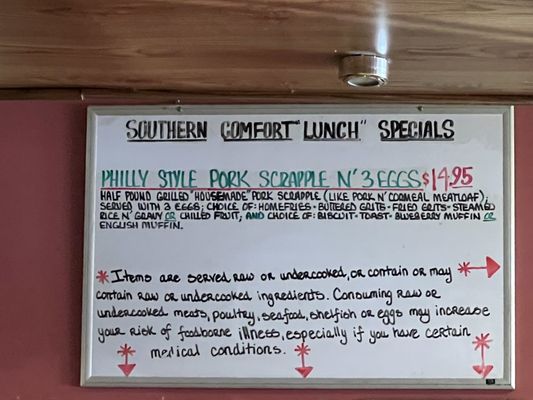 SOUTHERN COMFORT "LUNCH" SPECIALS
PHILLY STYLE PORK SCRAPPLE N' 3 EGGS $14.95
HALF POUND GRILLED "HOUSEMADE" PORK SCRAPPLE (LIKE PORK N' CORMEAL MEATLOAF);
SERVED WITH 3 EGGS; CHOICE OF: HOMEFRIES - BUTTERED GRITS - FRIED GRITS - STEAMED
RICE N' GRAVY OR CHILLED FRUIT; AND CHOICE OF: BISCUIT - TOAST - BLUEBERRY MUFFIN OR
ENGLISH MUFFIN.
* Items are served raw or undercooked, or contain or may
contain raw or undercooked ingredients. Consuming raw or
undercooked meats, poultry, seafood, shelfish or eggs may increase
your risk of foodborne illness, especially if you have certain
medical conditions.